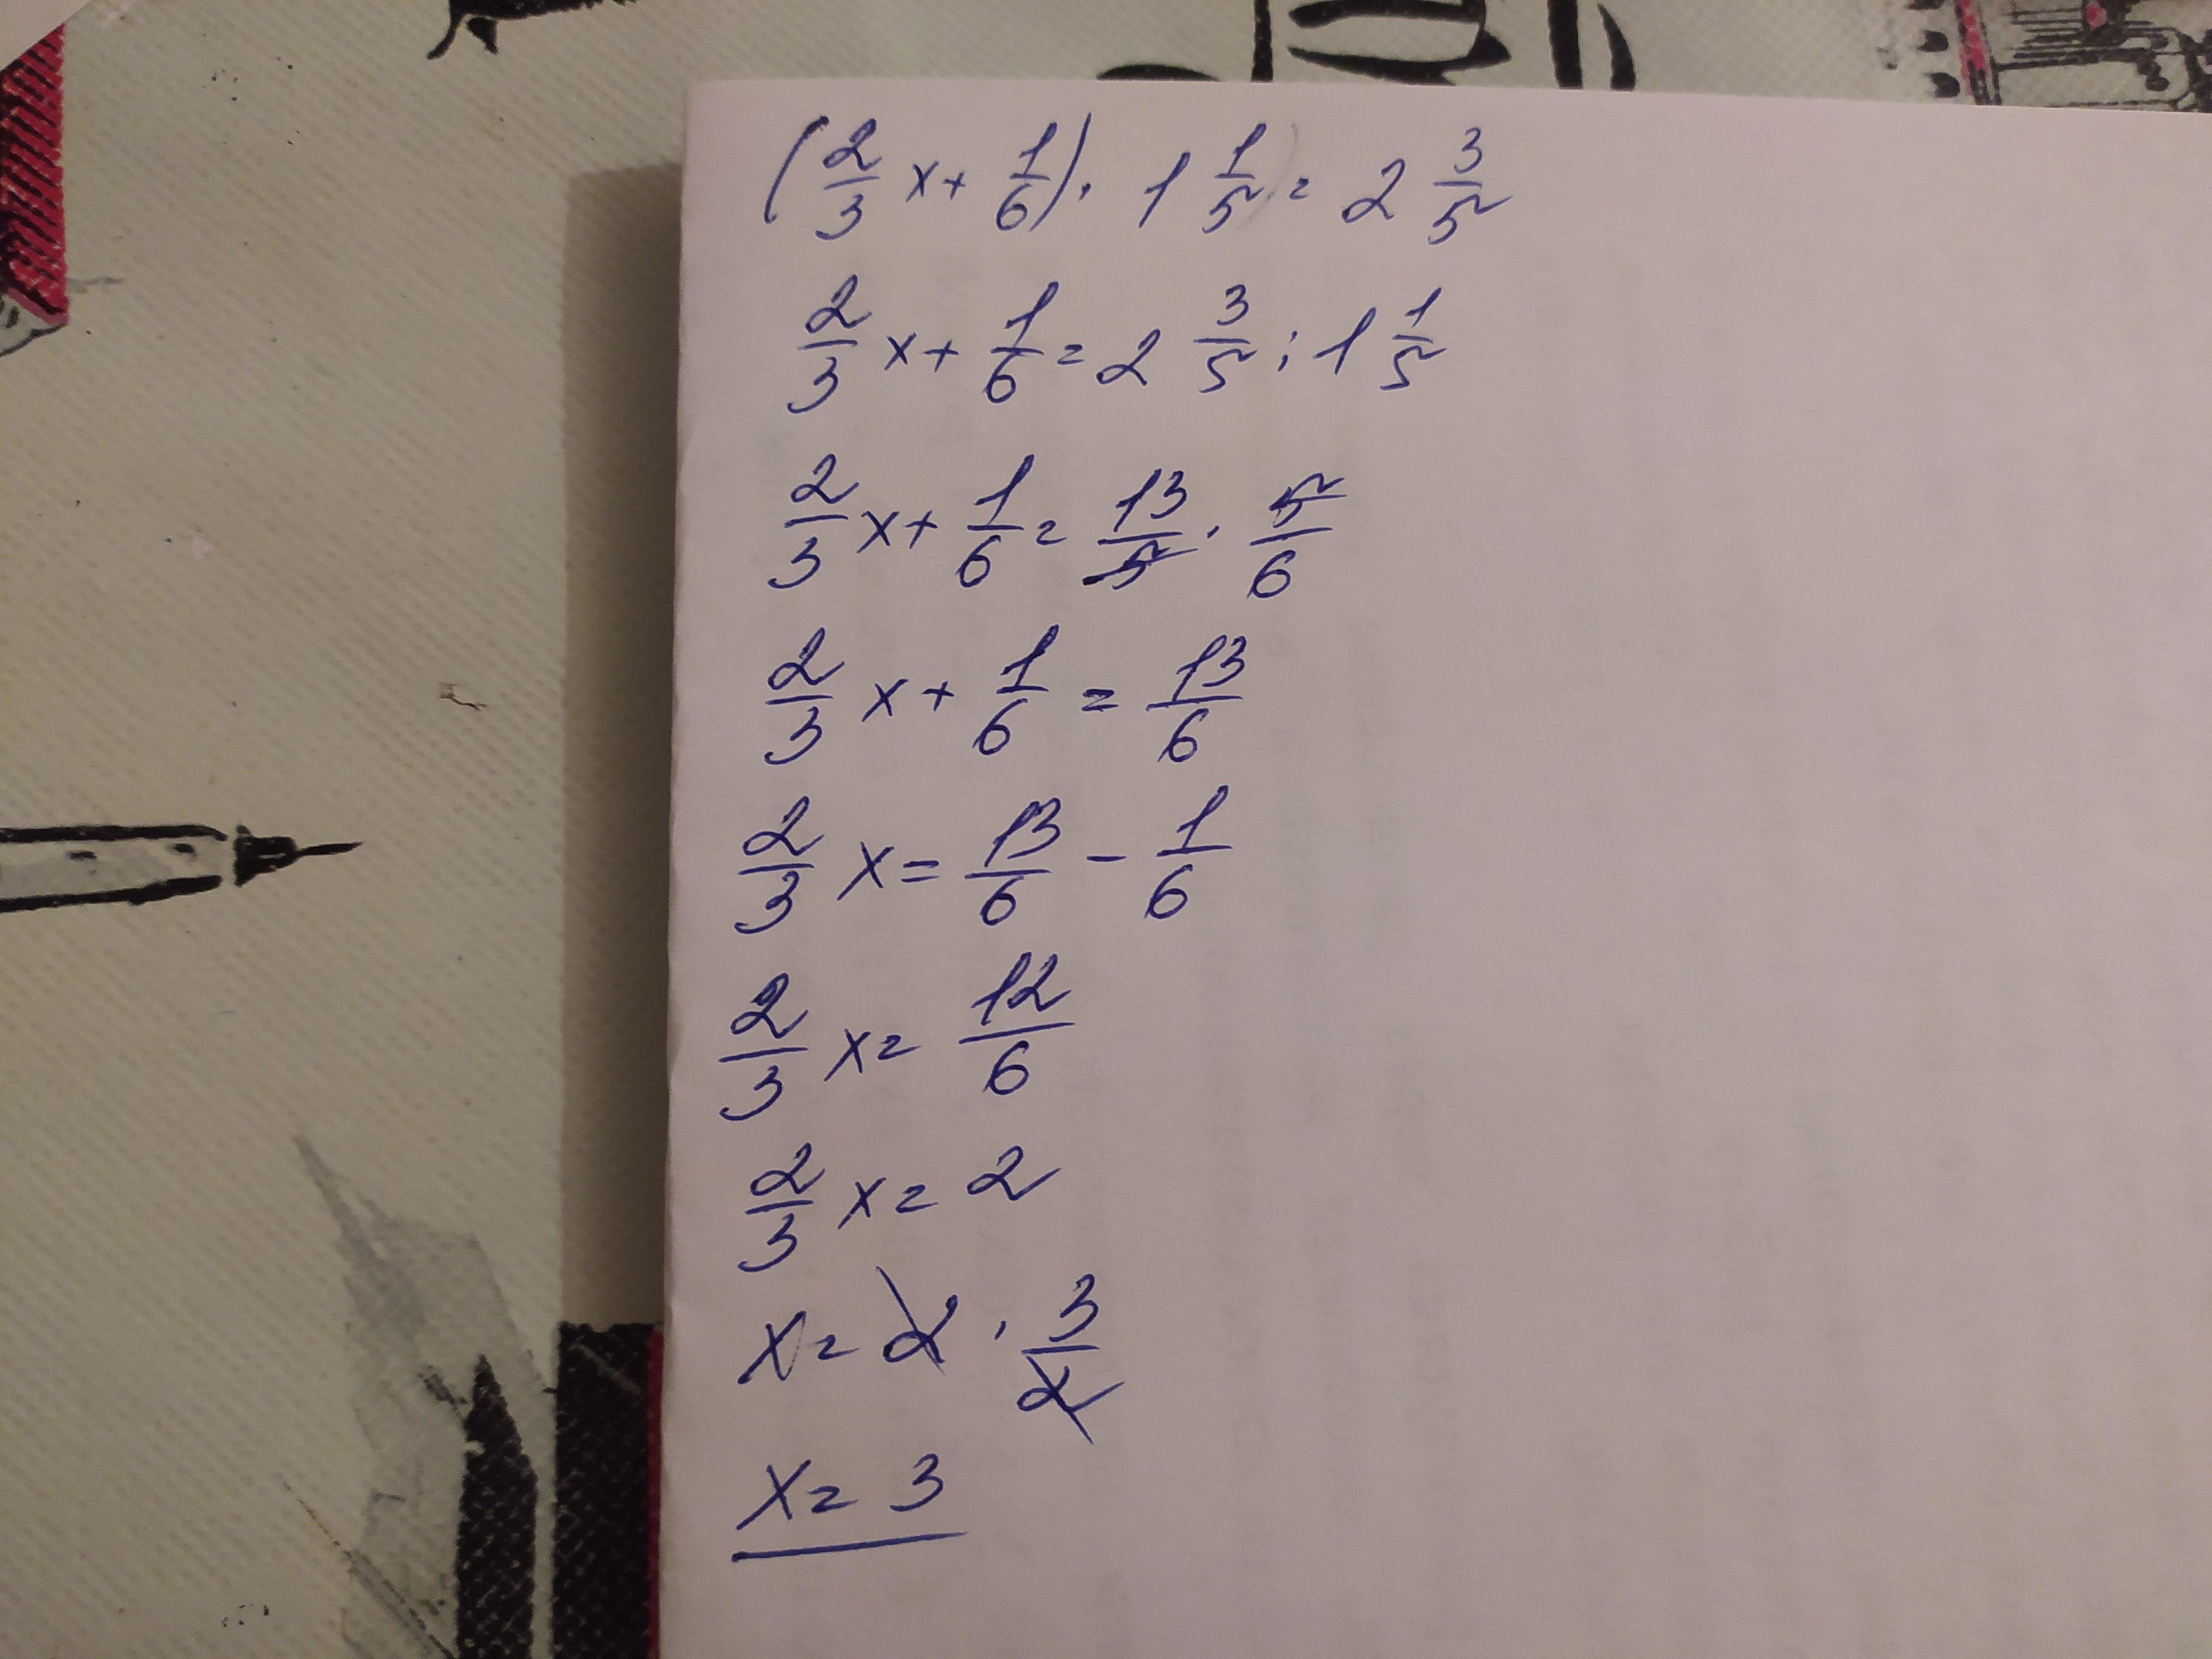 (2/3 x + 1/6) · 1 1/5 = 2 3/5
2/3 x + 1/6 = 2 3/5 : 1 1/5
2/3 x + 1/6 = 13/5 · 5/6
2/3 x + 1/6 = 13/6
2/3 x = 13/6 - 1/6
2/3 x = 12/6
2/3 x = 2
x = 2 · 3/2
x = 3